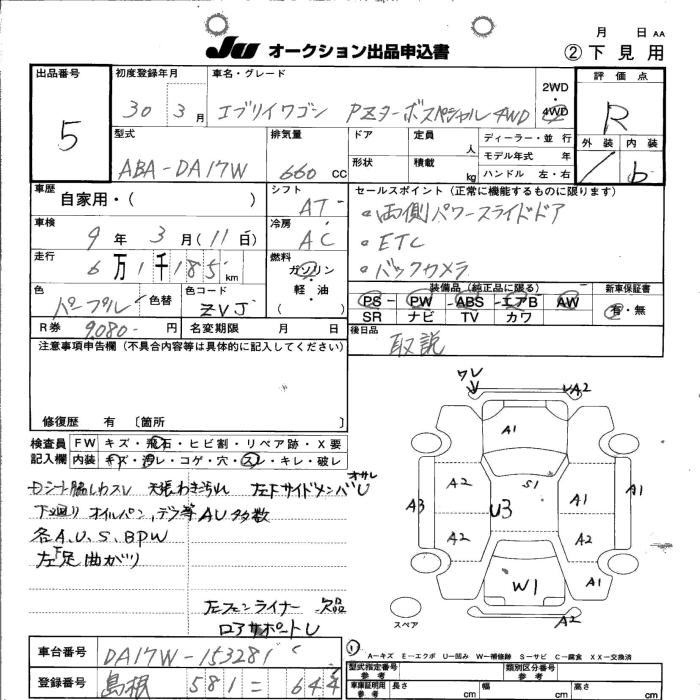 月 日 AA
JU オークション出品申込書
② 下見用
出品番号 5
初度登録年月 30 3月
車名・グレード エブリイワゴン PZターボスペシャル 4WD
2WD・4WD
評価点 R
外装 内装 b
型式 ABA-DA17W
排気量 660 CC
ドア
形状
定員 人
積載 kg
ディーラー・並行
モデル年式 年
ハンドル 左・右
車歴 自家用・( )
シフト AT
セールスポイント (正常に機能するものに限ります)
・両側パワースライドドア
・ETC
・バックカメラ
車検 9年3月(11日)
冷房 AC
走行 6万1千185km
燃料 ガソリン・軽・油 ( )
色 パープル 色替
色コード ZVJ
装備品 (純正品に限る)
PS PW ABS エアB AW
SR ナビ TV カワ
新車保証書 有・無
R券 9,080- 円
名変期限 月 日
後日品 取説
注意事項申告欄 (不具合内容等は具体的に記入してください)
修復歴 有 〔箇所 〕
検査員記入欄
FW キズ・飛石・ヒビ割・リペア跡・X要
内装 キズ・汚レ・コゲ・穴・スレ・キレ・破レ
Dシート脇しわスレ 天張わきよごれ 左FサイドメンバオサレU
下廻り オイルパン,デフ等AU多数
各A.U.S.BPW
左下足曲がり
左フェンライナー欠品
ロアサポートU
ワレ
A2
A1
A2
S1
A1
A1
A3
U3
A2
A2
A1
W1
A2
スペア
① A-キズ E-エクボ U-凹み W-補修跡 S-サビ C-腐食 XX-交換済
車台番号 DA17W-153281
登録番号 島根 581 = 644
型式指定番号 参考
類別区分番号 参考
車庫証明用 参考 長さ cm 幅 cm 高さ cm